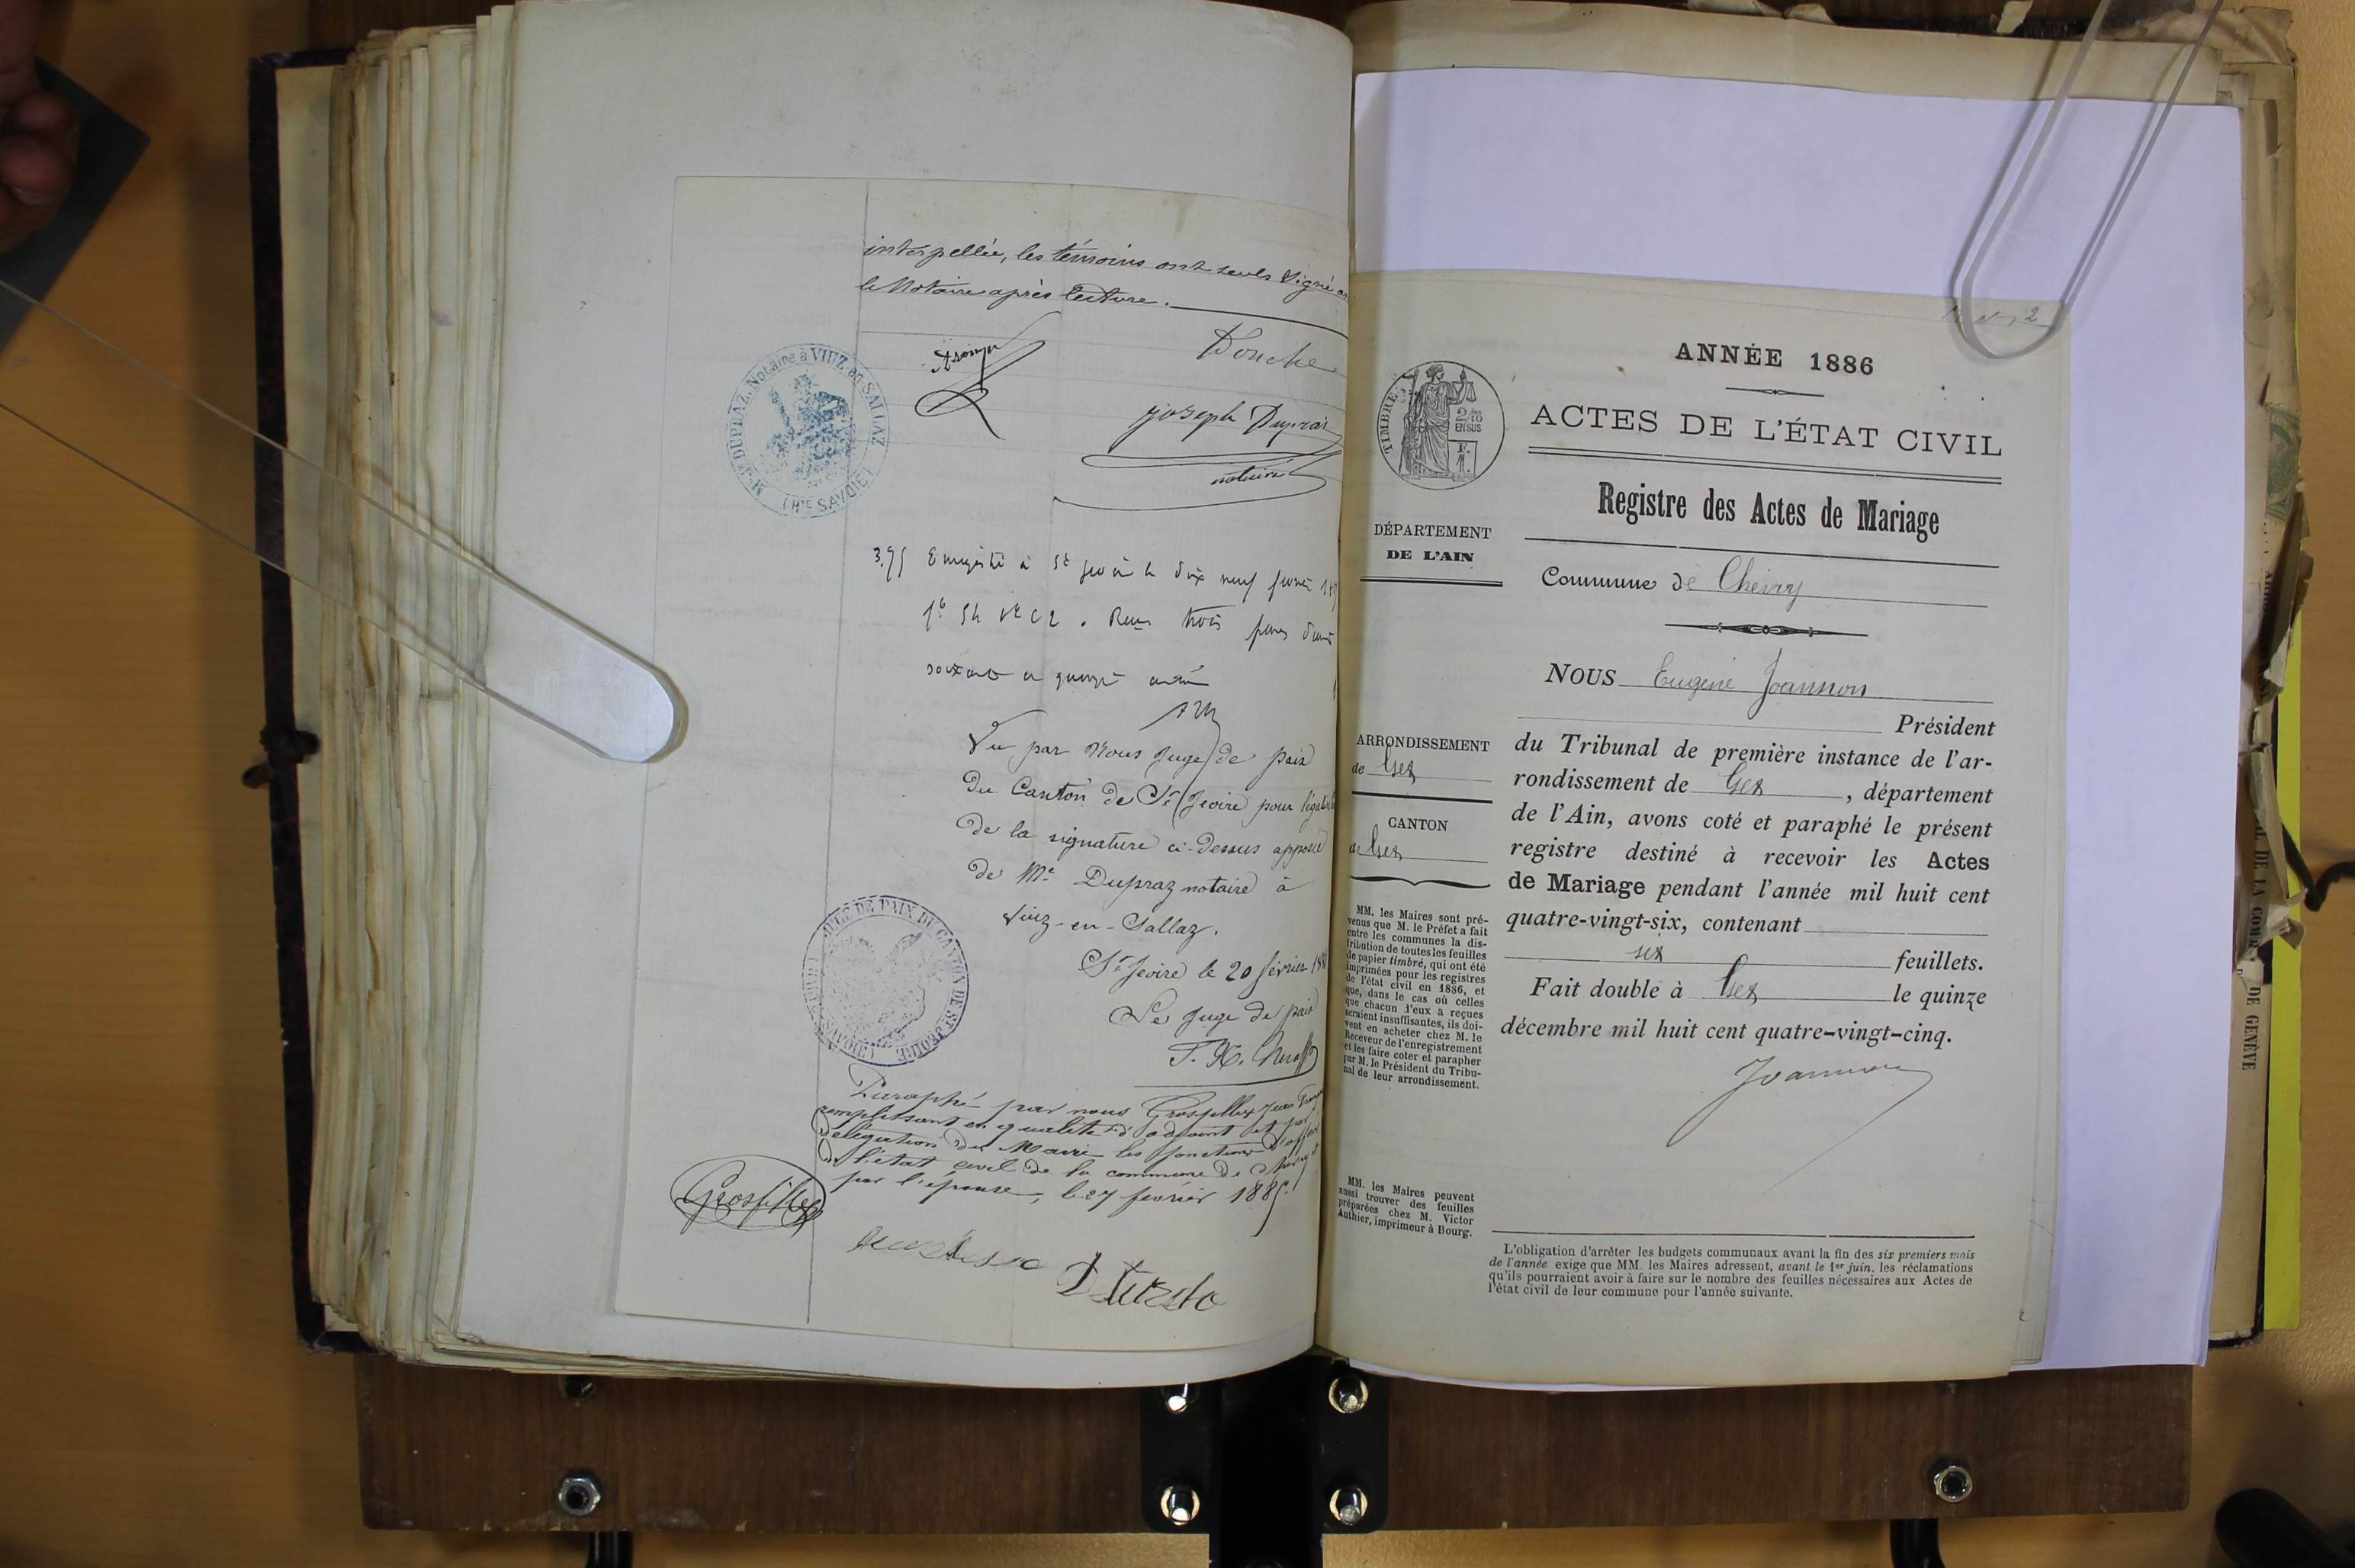 interpellée, les témoins ont seuls signé
le Notaire après lecture.
Donche
joseph Dupraz
notaire
Me Jh DUPRAZ, Notaire à VIUZ en SALLAZ
(Hte SAVOIE)
3,75 Enregistré à St Jeoire le dix neuf février
fo 54 Vo C 2. Reçu trois francs
soixante et quinze centimes
Vu par Nous Juge de paix
du Canton de St Jeoire pour légalis
de la signature ci-dessus apposée
de Me Dupraz notaire à
Viuz-en-Sallaz.
St Jeoire le 20 février 188
Le Juge de paix
JUGE DE PAIX DU CANTON DE ST JEOIRE
Paraphé par nous Grospellier Jean
remplissant en qualité d'adjoint et par
délégation du Maire les fonctions
de l'état civil de la commune de
par l'épouse, le 27 février 1885.
ANNÉE 1886
ACTES DE L'ÉTAT CIVIL
TIMBRE
2/10
EN SUS
Registre des Actes de Mariage
DÉPARTEMENT
DE L'AIN
Commune de Chevry
NOUS Eugène Joannon
Président
du Tribunal de première instance de l'ar-
rondissement de Gex, département
de l'Ain, avons coté et paraphé le présent
registre destiné à recevoir les Actes
de Mariage pendant l'année mil huit cent
quatre-vingt-six, contenant
six feuillets.
Fait double à Gex le quinze
décembre mil huit cent quatre-vingt-cinq.
Joannon
ARRONDISSEMENT
de Gex
CANTON
de Gex
MM. les Maires sont pré-
venus que M. le Préfet a fait
entre les communes la dis-
tribution de toutes les feuilles
de papier timbré, qui ont été
imprimées pour les registres
de l'état civil en 1886, et
que, dans le cas où celles
que chacun d'eux a reçues
seraient insuffisantes, ils doi-
vent en acheter chez M. le
Receveur de l'enregistrement
et les faire coter et parapher
par M. le Président du Tribu-
nal de leur arrondissement.
MM. les Maires peuvent
aussi trouver des feuilles
préparées chez M. Victor
Authier, imprimeur à Bourg.
L'obligation d'arrêter les budgets communaux avant la fin des six premiers mois
de l'année exige que MM. les Maires adressent, avant le 1er juin, les réclamations
qu'ils pourraient avoir à faire sur le nombre des feuilles nécessaires aux Actes de
l'état civil de leur commune pour l'année suivante.
DE LA COUR DE GENÈVE